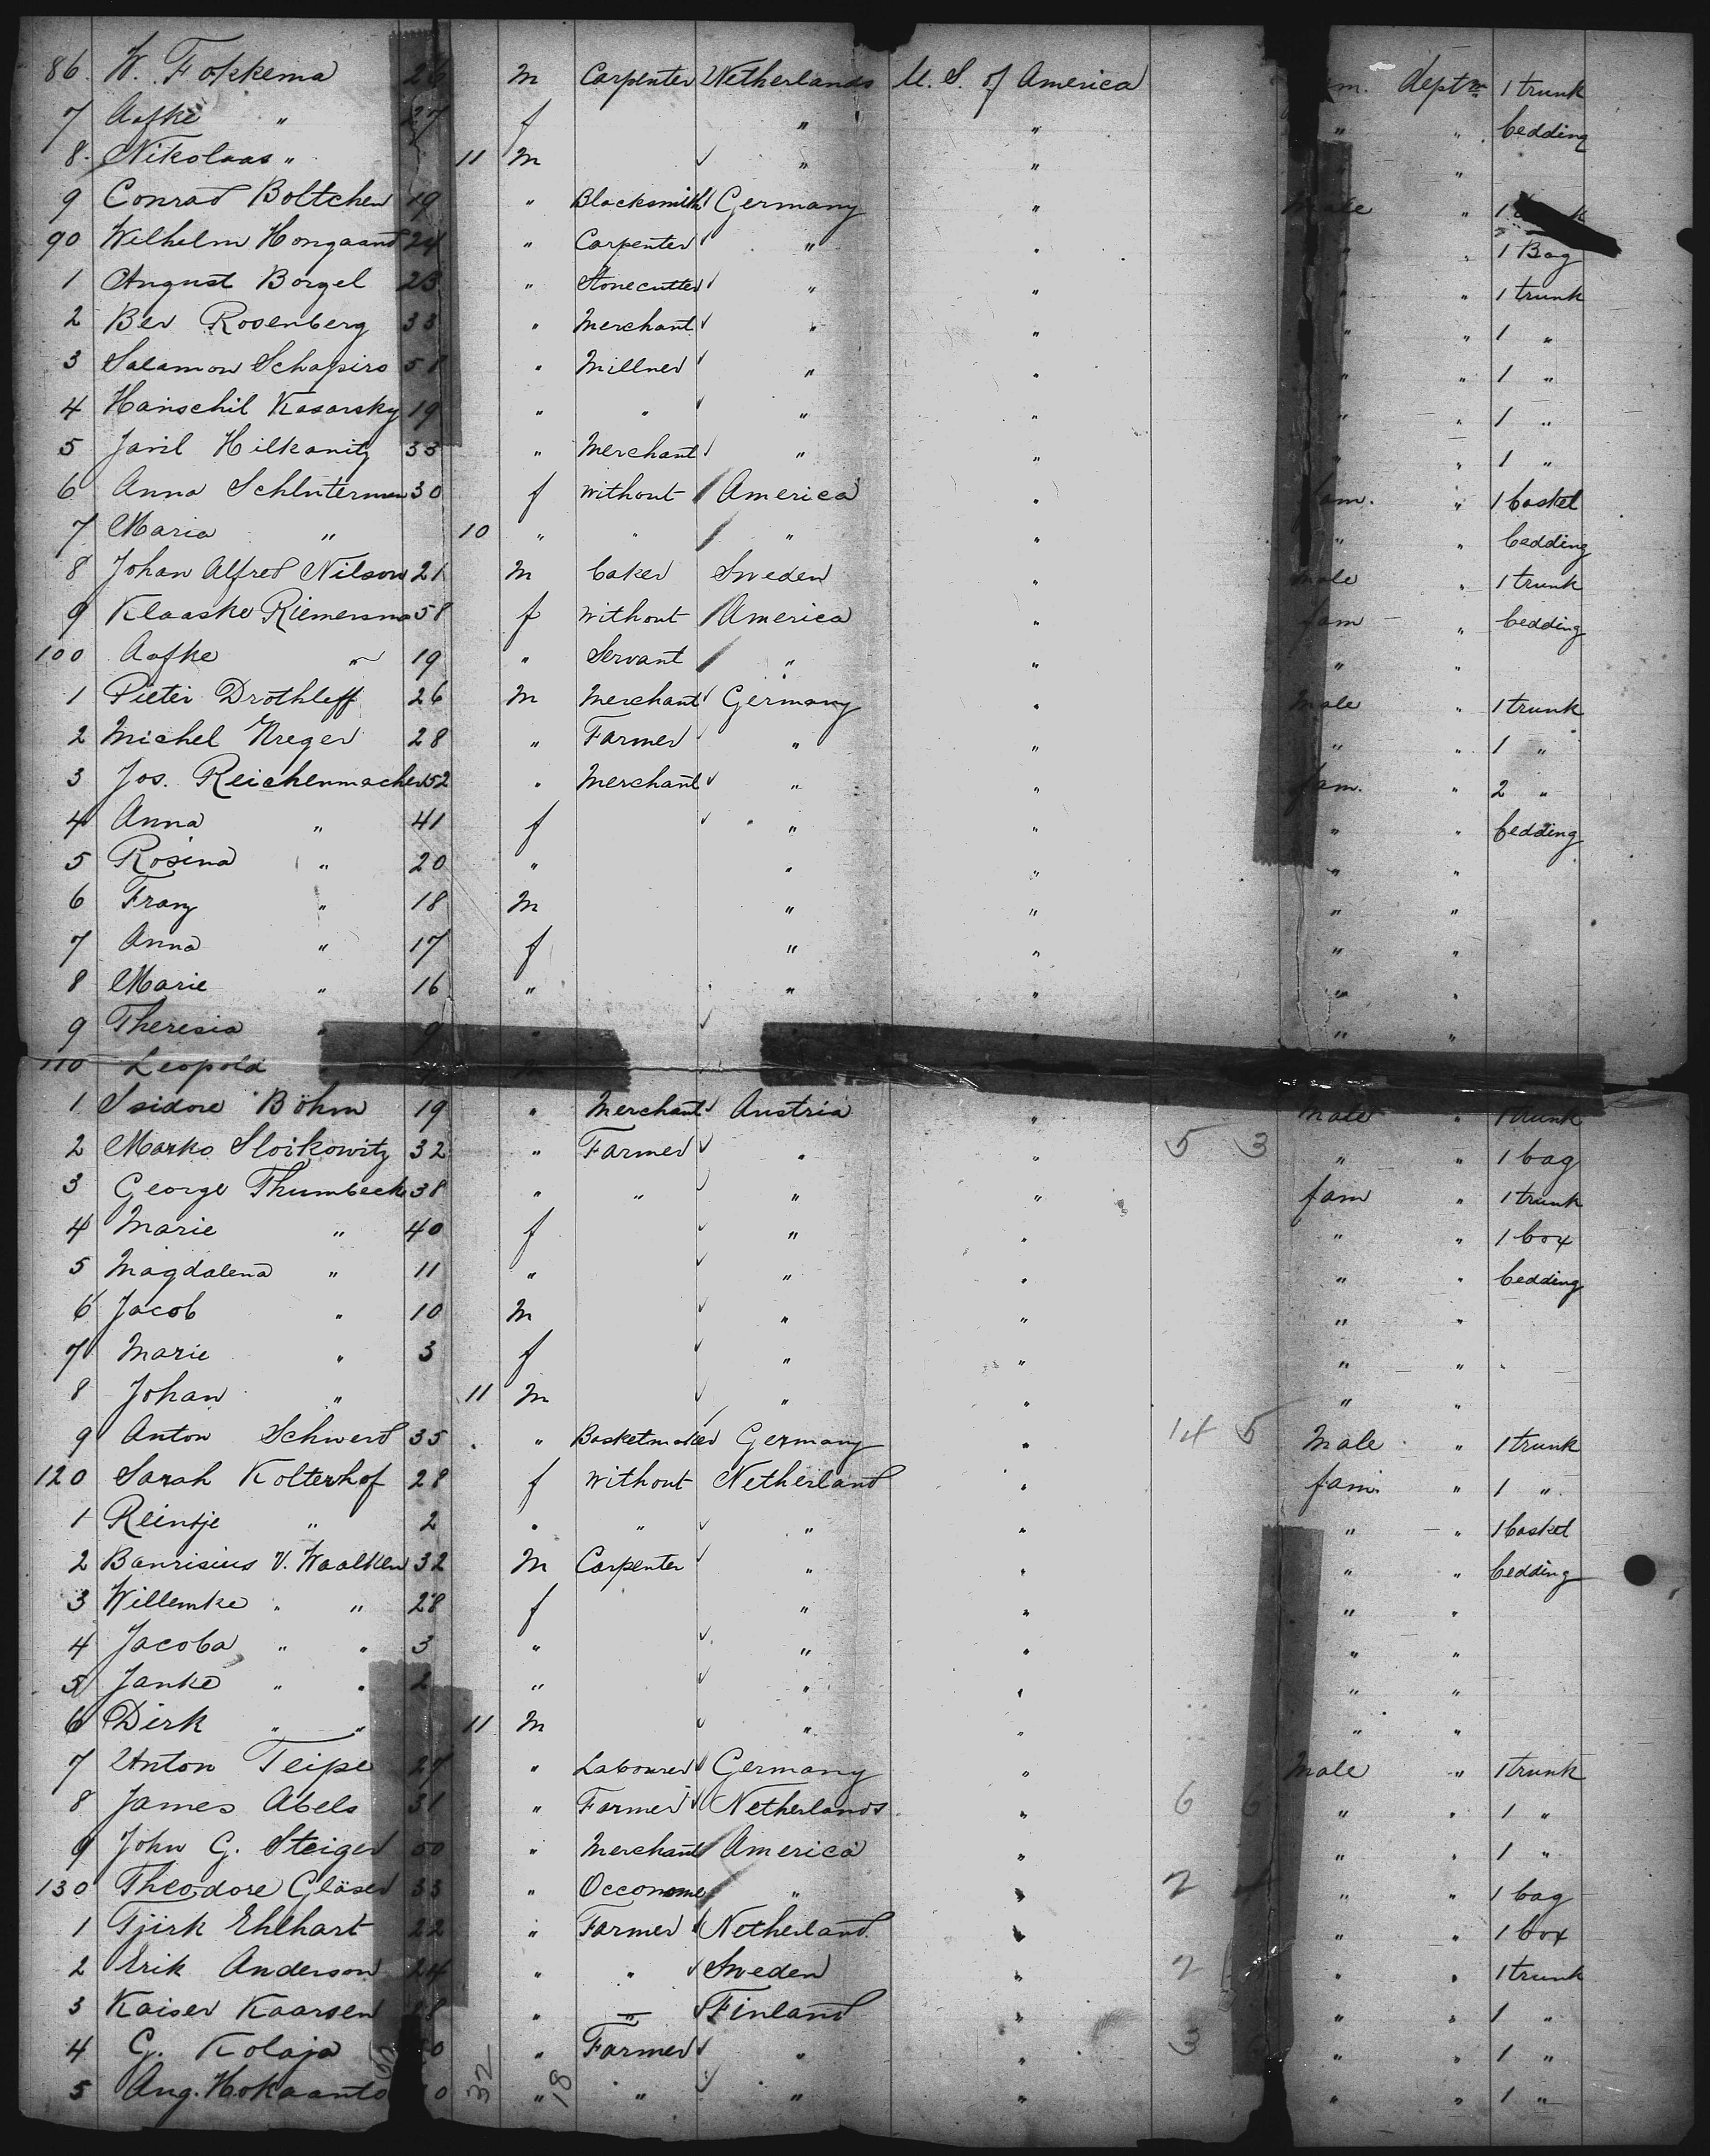 86. W. Fokkema 26 m Carpenter Netherlands U. S. of America fam. deptm 1 trunk
7 Aafke " 27 f " " " " bedding
8. Nikolaas " 11 m " " "
9 Conrad Boltchen 19 " Blacksmith Germany " Male " 1
90 Wilhelm Hongaard 24 " Carpenter " " " " 1 Bag
1 August Borgel 23 " Stonecutter " " " " 1 trunk
2 Ber Rosenberg 33 " Merchant " " " " 1 "
3 Salamon Schapiro 51 " Millner " " " " 1 "
4 Hanschil Kasarsky 19 " " " " " " 1 "
5 Javil Hilkanitz 33 " Merchant " " " " 1 "
6 Anna Schluterman 30 f without America " fam. " 1 basket
7 Maria " 10 " " " " " " bedding
8 Johan Alfred Nilson 21 m baker Sweden " Male " 1 trunk
9 Klaaske Riemersma 58 f without America " fam " bedding
100 Aafke " 19 " Servant " " " "
1 Pieter Drothleff 26 m Merchant Germany " Male " 1 trunk
2 Michel Kreger 28 " Farmer " " " " 1 "
3 Jos. Reichenmacher 52 " Merchant " " fam. " 2 "
4 Anna " 41 f " " " " bedding
5 Rosina " 20 " " " " "
6 Franz " 18 m " " " "
7 Anna " 17 f " " " "
8 Marie " 16 " " " " "
9 Theresia " 9 " " "
110 Leopold
1 Isidore Böhm 19 " Merchant Austria " Male " 1 trunk
2 Marko Sloikowitz 32 " Farmer " " 5 3 " " 1 bag
3 George Thumbeck 38 " " " " fam " 1 trunk
4 Marie " 40 f " " " " 1 box
5 Magdalena " 11 " " " " " bedding
6 Jacob " 10 m " " " "
7 Marie " 3 f " " " "
8 Johan " 11 m " " " "
9 Anton Schwerd 35 " Basketmaker Germany " 14 5 Male " 1 trunk
120 Sarah Kolterhof 28 f without Netherland " fam. " 1 "
1 Reintje " 2 " " " " " " 1 basket
2 Banrisius V. Waalken 32 m Carpenter " " " " bedding
3 Willemke " " 28 f " " " "
4 Jacoba " " 3 " " " " "
5 Janke " " 2 " " " " "
6 Dirk " " 11 m " " " "
7 Anton Teipe 27 " Labourer Germany " Male " 1 trunk
8 James Abels 31 " Farmer Netherlands " 6 6 " " 1 "
9 John G. Steiger 50 " Merchant America " " " 1 "
130 Theodore Gläser 33 " Occonome " " 2 " " 1 bag
1 Tjirk Ehlhart 22 " Farmer Netherland " " " 1 box
2 Erik Anderson 24 " " Sweden " 2 " " 1 trunk
3 Kaiser Kaarsen 28 " " Finland " " " 1 "
4 G. Kolaja " Farmer " " 3 " " 1 "
5 Aug. Hokaanto " " " " " " 1 "
32 18